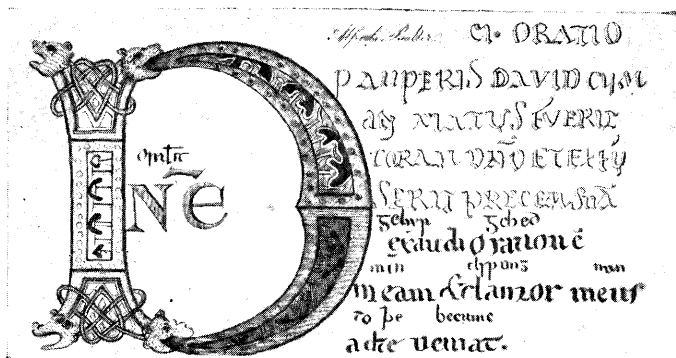 Alfreds Psalter CI· ORATIO
PAUPERIS DAVID CUM
FUERIT
CORAM ET
PRECEM
DN̄E
gehyr gebed
exaudi orationē
min clypung min
meam & clamor meus
to þe becume
ad te veniat.